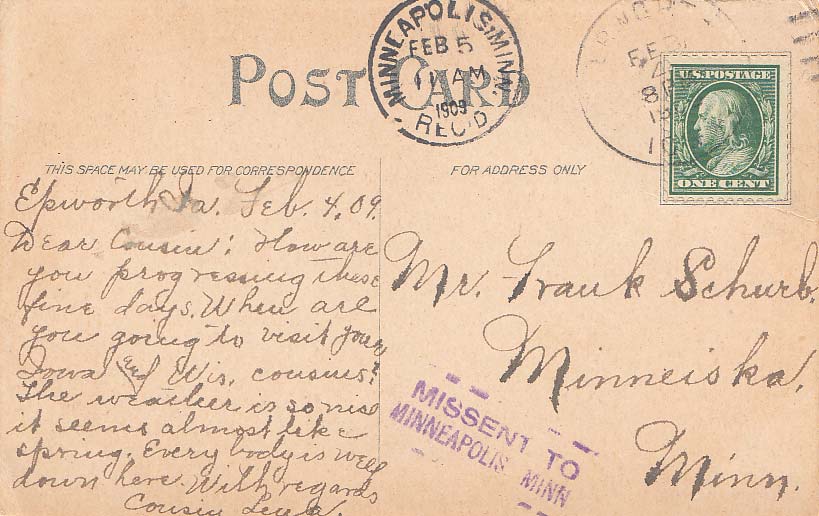 POST CARD
MINNEAPOLIS, MINN.
FEB 5
11 AM
1909
REC'D
FEB
U.S. POSTAGE
ONE CENT
THIS SPACE MAY BE USED FOR CORRESPONDENCE
FOR ADDRESS ONLY
Epworth, Ia. Feb. 4, 09.
Dear Cousin: How are
you progressing these
fine days. When are
you going to visit your
Iowa and Wis. cousins?
The weather is so nise
it seems almost like
spring. Every body is well
down here. With regards
Cousin
Mr. Frank Schurb.
Minneiska,
Minn.
MISSENT TO
MINNEAPOLIS MINN